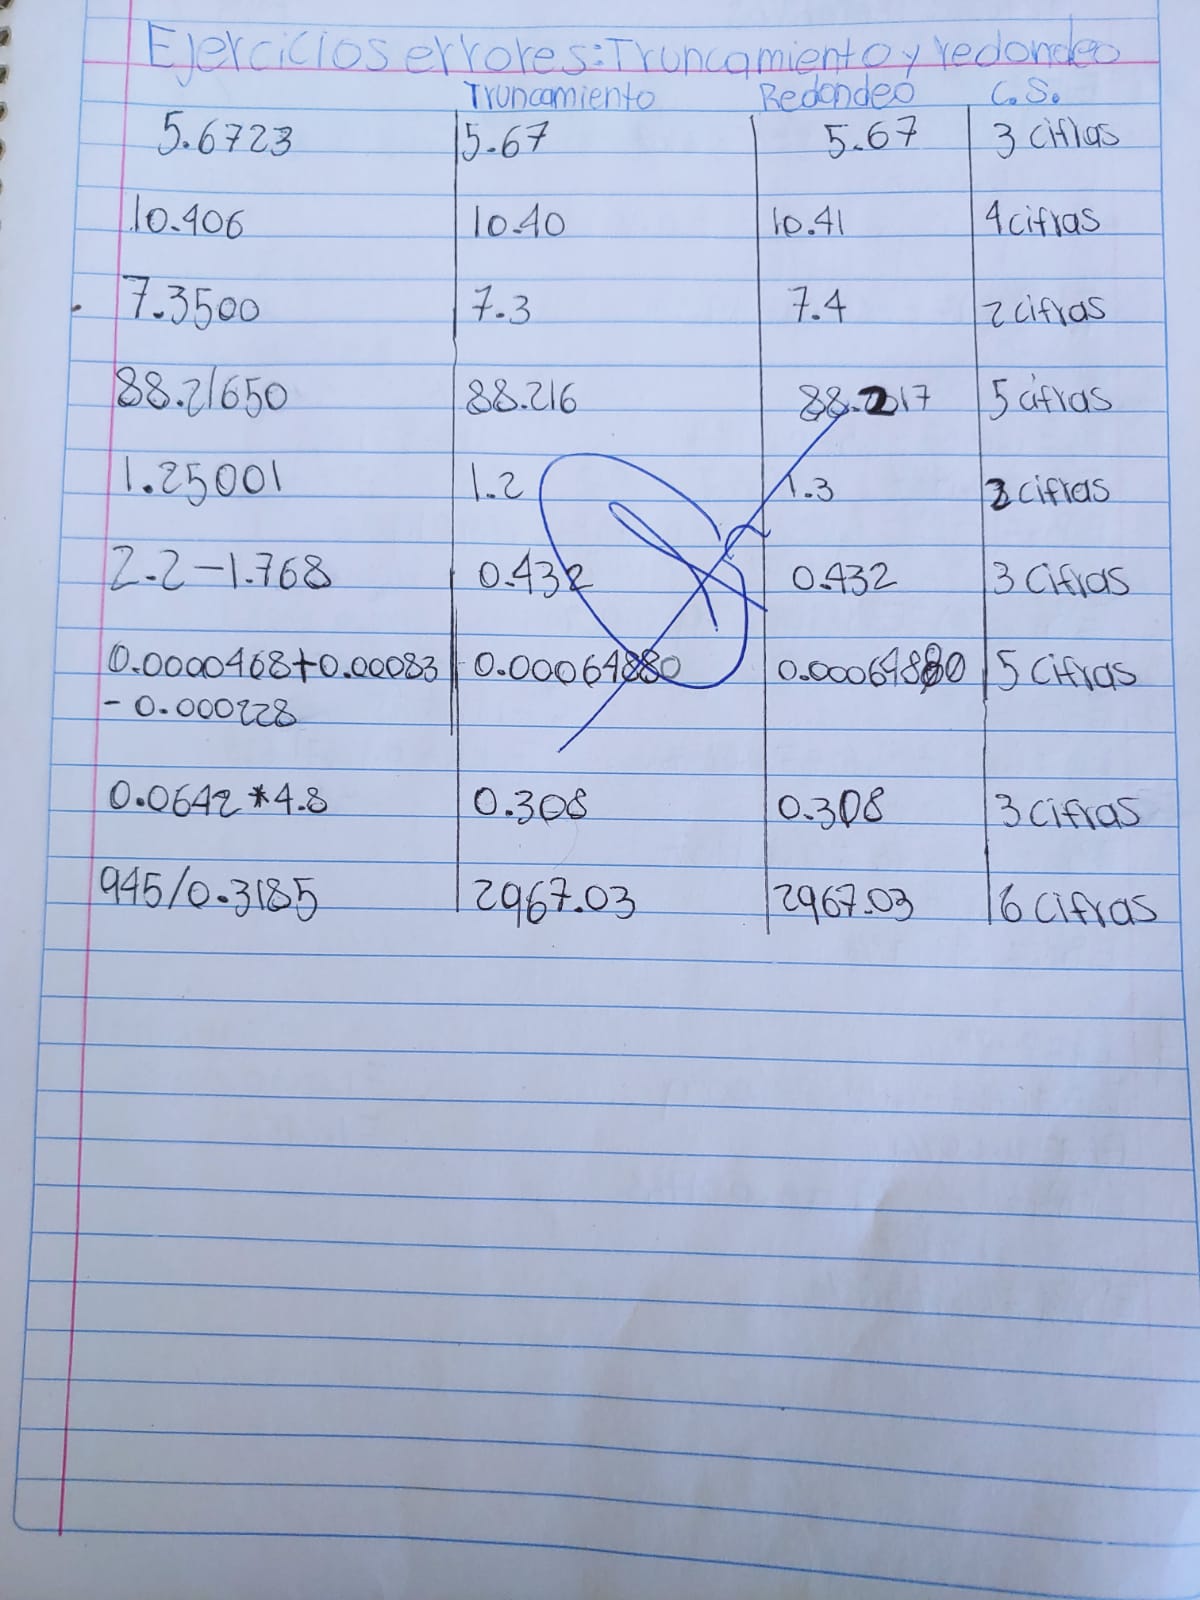 Ejercicios errores: Truncamiento y redondeo
Truncamiento Redondeo C.S.
5.6723 5.67 5.67 3 cifras
10.406 10.40 10.41 4 cifras
7.3500 7.3 7.4 2 cifras
88.21650 88.216 88.217 5 cifras
1.25001 1.2 1.3 2 cifras
2.2-1.768 0.432 0.432 3 cifras
0.0000468+0.00083 0.00064880 0.00064880 5 cifras
- 0.000228
0.0642*4.8 0.308 0.308 3 cifras
945/0.3185 2967.03 2967.03 6 cifras